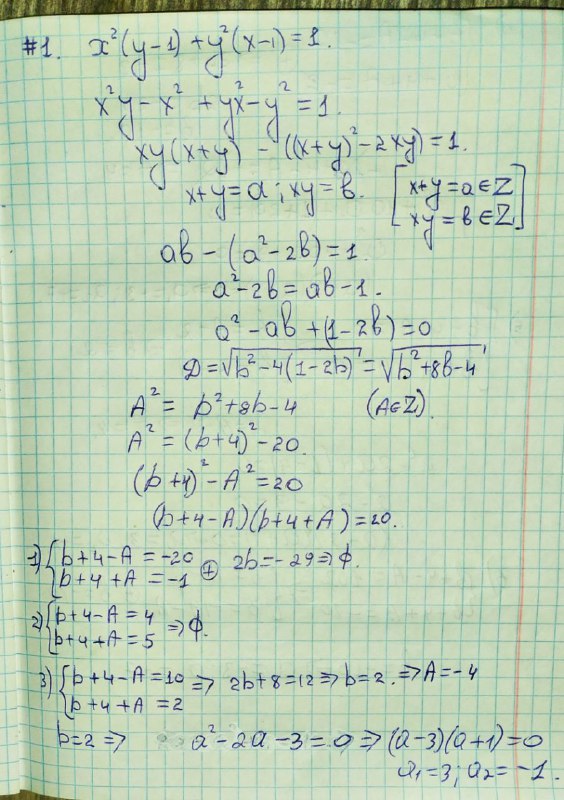 #1. x²(y-1)+y²(x-1)=1.
x²y-x²+y²x-y²=1.
xy(x+y) - ((x+y)²-2xy)=1.
x+y=a; xy=b. [x+y=a∈Z
xy=b∈Z]
ab-(a²-2b)=1.
a²-2b=ab-1.
a²-ab+(1-2b)=0
D=√b²-4(1-2b)=√b²+8b-4
A²= b²+8b-4 (A∈Z).
A²=(b+4)²-20.
(b+4)²-A²=20
(b+4-A)(b+4+A)=20.
1) {b+4-A=-20
b+4+A=-1 ⊕ 2b=-29⇒ϕ.
2) {b+4-A=4
b+4+A=5 ⇒ϕ.
3) {b+4-A=10 ⇒ 2b+8=12⇒b=2.⇒A=-4
b+4+A=2
b=2⇒ a²-2a-3=0⇒(a-3)(a+1)=0
a₁=3; a₂=-1.